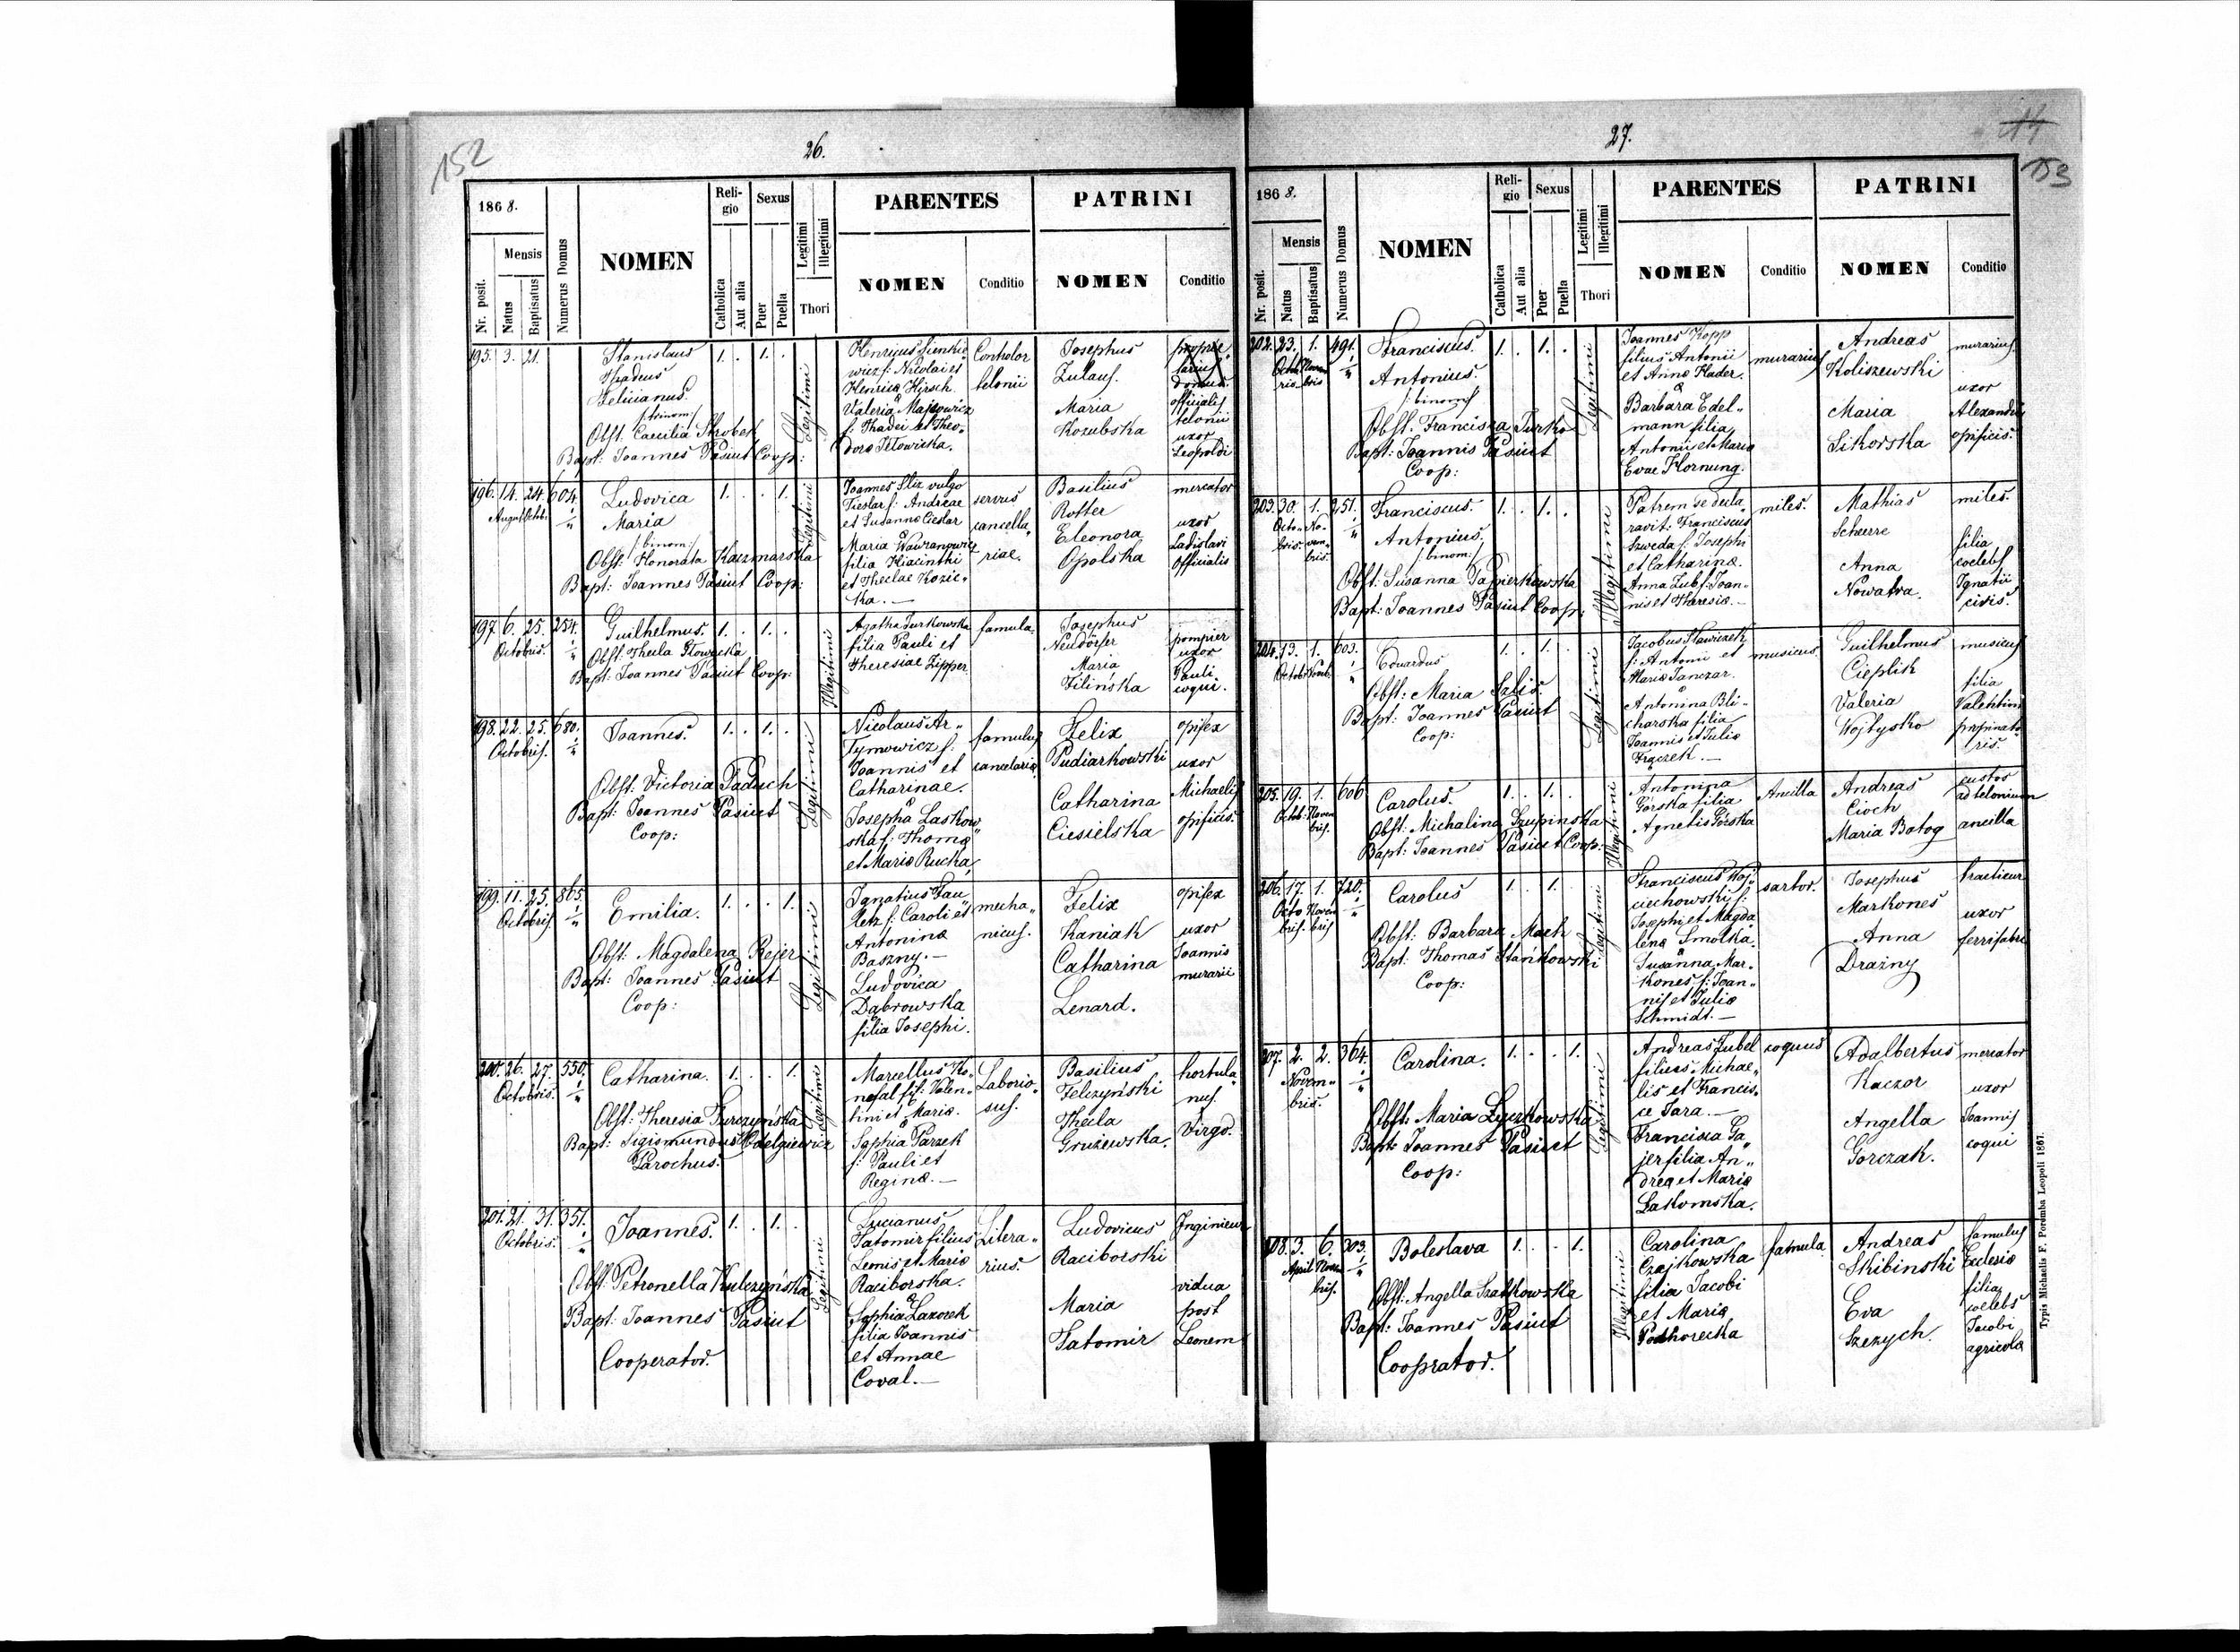 152
26.
1868.
Religio
Sexus
Legitimi
Illegitimi
PARENTES
PATRINI
Mensis
Nr. posit.
Natus
Baptisatus
Numerus Domus
NOMEN
Catholica
Aut alia
Puer
Puella
Thori
NOMEN
Conditio
NOMEN
Conditio
195. 3. 21.
Stanislaus
Thadeus
Felicianus.
/:trinom:/
Obst. Caecilia Strobek
Bapt: Joannes Pasiut Coop:
1. . 1. .
Legitimi
Henricus Sienkie
wicz f: Nicolai et
Henricae Hirsch.
&
Valeria Majzowicz
f: Thadei et Theo„
dora Tetowicka.
Controlor
telonii
Josephus
Zulauf.
Maria
Kozubska
proprie
tarius
domus.
officialis
telonii
uxor
Leopoldi
196. 14. 24. 604.
August Octob:
Ludovica
Maria
/:binom:/
Obst: Honorata Kaczmarska
Bapt: Joannes Pasiut Coop:
1. . . 1.
Legitimi
Joannes Sliz vulgo
Cieslar f: Andreae
et Susannae Cieslar
&
Maria Wawranowicz
filia Hiacinthi
et Theclae Kozic„
ka. —
servus
cancella„
riae.
Basilius
Rotter
Eleonora
Opolska
mercator
uxor
Ladislavi
Officialis
197. 6. 25. 254.
Octobris.
Guilhelmus.
Obst: Thecla Glowacka
Bapt: Joannes Pasiut Coop:
1. . 1. .
Illegitimi
Agatha Turkowska
filia Pauli et
Theresiae Zipper.
famula
Josephus
Neudörfer
Maria
Filińska
pompier
uxor
Pauli
coqui.
198. 22. 25. 680.
Octobris.
Joannes.
Obst. Victoria Paduch
Bapt: Joannes Pasiut
Coop:
1. . 1. .
Legitimi
Nicolaus Ar„
Tymowicz f:
Joannis et
Catharinae.
&
Josepha Laskow„
ska f: Thomae
et Mariae Rucka
famulus
cancelariae
Felix
Pudiarkowski
Catharina
Ciesielska
opifex
uxor
Michaelis
opificis.
199. 11. 25. 865.
Octobris.
Emilia.
Obst: Magdalena Rejer
Bapt: Joannes Pasiut
Coop:
1. . . 1.
Legitimi
Ignatius Pau„
letz f: Caroli et
Antoninae
Baszny. —
Ludovica
Dąbrowska
filia Josephi.
mecha„
nicus.
Felix
Kaniak
Catharina
Lenard.
opifex
uxor
Joannis
murarii
200. 26. 27. 550.
Octobris.
Catharina.
Obst: Theresia Turczyńska
Bapt: Sigismundus Odelgiewicz
Parochus.
1. . . 1.
Legitimi
Marcellus Ko„
nofal fil: Valen„
tini et Mariae.
&
Sophia Parzek
f: Pauli et
Reginae. —
Laborio„
sus.
Basilius
Felczyński
Thecla
Gruzewska.
hortula„
nus.
Virgo.
201. 21. 31. 351.
Octobris.
Joannes.
Obst: Petronella Kulczyńska
Bapt: Joannes Pasiut
Cooperator.
1. . 1. .
Legitimi
Lucianus
Tatomir filius
Leonis et Mariae
Raciborska.
&
Sophia Lazorek
filia Joannis
et Annae
Coval. —
Litera„
rius.
Ludovicus
Raciborski
Maria
Tatomir
Ingінieur
vidua
post
Leonem
27.
11
153
1868.
Religio
Sexus
Legitimi
Illegitimi
PARENTES
PATRINI
Mensis
Nr. posit.
Natus
Baptisatus
Numerus Domus
NOMEN
Catholica
Aut alia
Puer
Puella
Thori
NOMEN
Conditio
NOMEN
Conditio
202. 23. 1. 491.
Franciscus.
Antonius.
/:binom:/
Obst. Francisca Turko
Bapt: Joannis Pasiut
Coop:
1. . 1. .
Legitimi
Joannes Kopp
filius Antonii
et Annae Hader.
&
Barbara Edel„
mann filia
Antonii et Mariae
Evae Hornung.
murarius
Andreas
Koliszewski
Maria
Sikorska
murarius.
uxor
Alexandri
opificis.
203. 30. 1. 251.
Octo„ No„
bris. vem„
bris.
Franciscus.
Antonius.
/:binom:/
Obst: Susanna Papierkowska
Bapt: Joannes Pasiut Coop:
1. . 1. .
Illegitimi
Patrem se decla„
ravit: Franciscus
Szweda f: Josephi
et Catharinae.
Anna Zub f: Joan„
nis et Theresiae. —
miles.
Mathias
Scheerre
Anna
Nowatra.
miles.
filia
coelebs
Ignatii
civis.
204. 13. 1. 603.
Eduardus
Obst: Maria Salis.
Bapt: Joannes Pasiut
Coop:
1. . 1. .
Legitimi
Jacobus Hawiczek
f: Antonii et
Mariae Janczar.
&
Antonina Bli„
charska filia
Joannis et Juliae
Frączek. —
musicus
Guilhelmus
Cieplik
Valeria
Wojtysko
musicus
filia
Valentini
propinato
ris.
205. 19. 1. 606
Carolus.
Obst: Michalina Szupinska
Bapt: Joannes Pasiut Coop:
1. . 1. .
Illegitimi
Antonina
Górska filia
Agnetis Górska
Ancilla
Andreas
Cioch
Maria Batog
custos
ad telonium
ancilla
206. 17. 1. 720.
Carolus
Obst: Barbara Mach
Bapt: Thomas Stańkowski
Coop:
1. . 1. .
Legitimi
Franciscus Woj„
ciechowski f:
Josephi et Magda
lenae Smolka.
&
Susanna Mar„
kones f: Joan„
nis et Juliae
Schmidt. —
sartor.
Josephus
Markones
Anna
Drażny
tracteur
uxor
ferrifabri
207. 2. 2. 364.
Novem„
bris.
Carolina.
Obst: Maria Lyczkowska
Bapt: Joannes Pasiut
Coop:
1. . . 1.
Legitimi
Andreas Zubel
filius Michae„
lis et Francis„
cae Tara. —
Francisca Ga„
jer filia An„
drea et Mariae
Lakomska.
coquus
Adalbertus
Kaczor
Angella
Gorczak.
mercator
uxor
Joannis
coqui
208. 3. 6. 303.
April Novem
bris.
Boleslava
Obst: Angella Szatkowska
Bapt: Joannes Pasiut
Cooprator.
1. . . 1.
Illegitimi
Carolina
Czajkowska
filia Jacobi
et Mariae
Podhorecka
famula
Andreas
Skibinski
Eva
Szezych.
famulus
Ecclesiae
filia
coelebs
Jacobi
agricolae
Typis Michaelis F. Poremba Leopoli 1867.